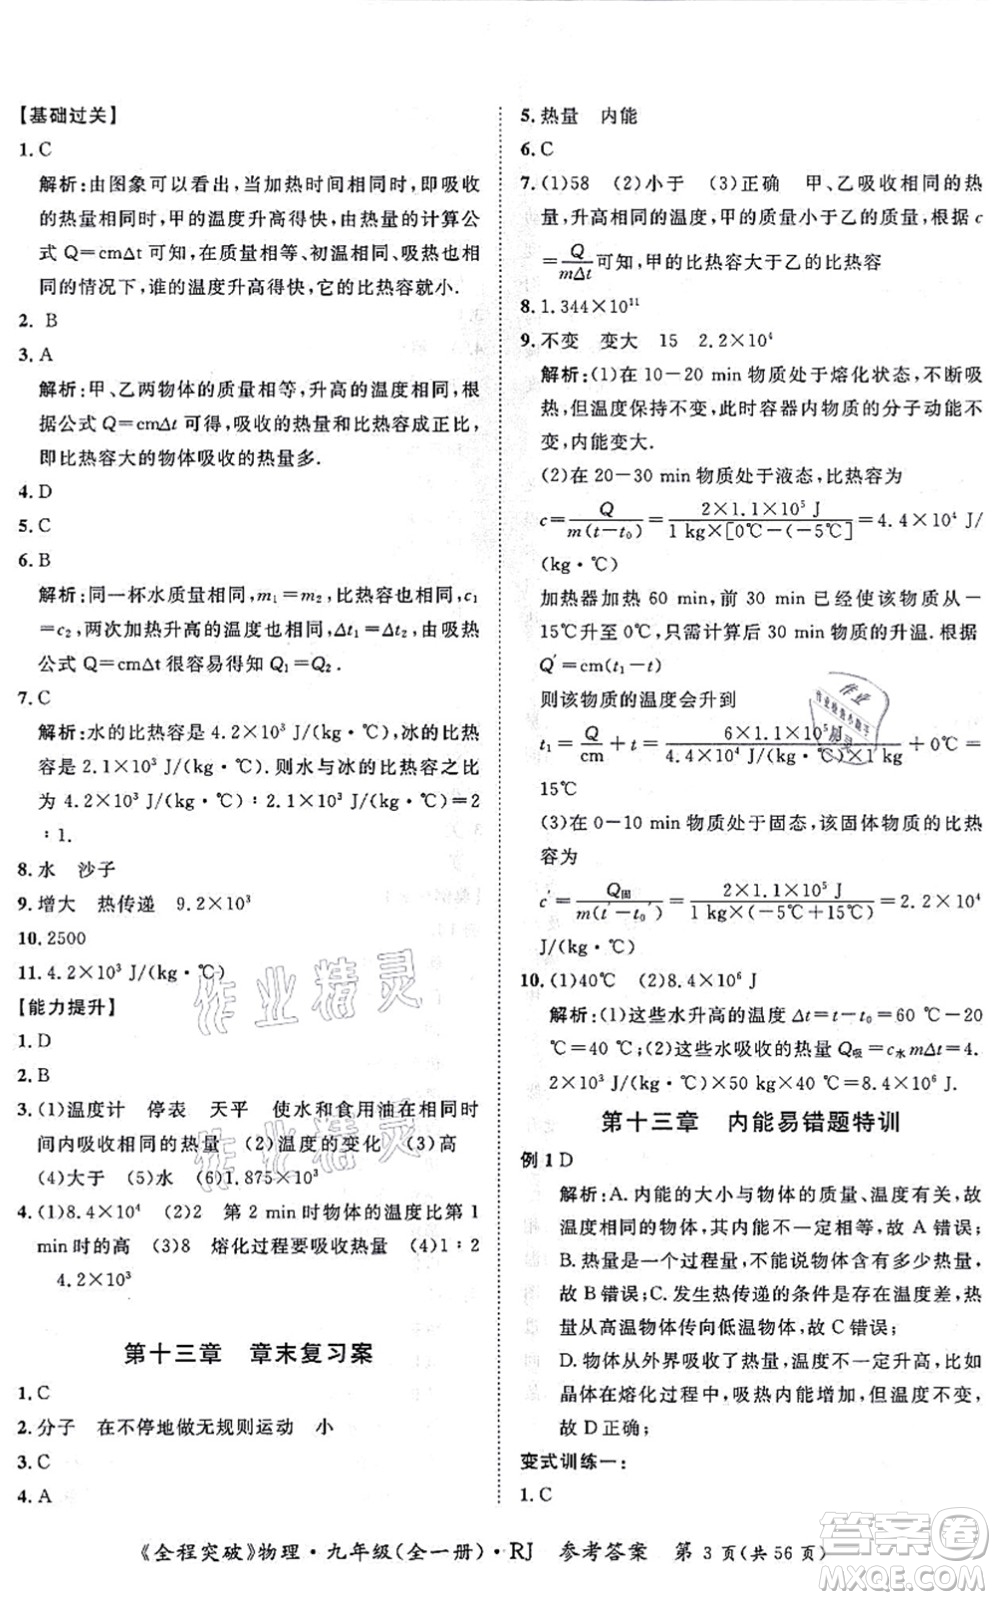 【基础过关】
1. C
解析:由图象可以看出,当加热时间相同时,即吸收
的热量相同时,甲的温度升高得快,由热量的计算公
式 Q=cmΔt 可知,在质量相等、初温相同、吸热也相
同的情况下,谁的温度升高得快,它的比热容就小.
2. B
3. A
解析:甲、乙两物体的质量相等,升高的温度相同,根
据公式 Q=cmΔt 可得,吸收的热量和比热容成正比,
即比热容大的物体吸收的热量多.
4. D
5. C
6. B
解析:同一杯水质量相同,m₁=m₂,比热容相同,c₁
=c₂,两次加热升高的温度也相同,Δt₁=Δt₂,由吸热
公式 Q=cmΔt 很容易得知 Q₁=Q₂.
7. C
解析:水的比热容是 4.2×10³ J/(kg·℃),冰的比热
容是 2.1×10³ J/(kg·℃).则水与冰的比热容之比
为 4.2×10³ J/(kg·℃)∶2.1×10³ J/(kg·℃)=2
∶1.
8. 水 沙子
9. 增大 热传递 9.2×10³
10. 2500
11. 4.2×10³ J/(kg·℃)
【能力提升】
1. D
2. B
3. (1)温度计 停表 天平 使水和食用油在相同时
间内吸收相同的热量 (2)温度的变化 (3)高
(4)大于 (5)水 (6)1.875×10³
4. (1)8.4×10⁴ (2)2 第 2 min时物体的温度比第 1
min时的高 (3)8 熔化过程要吸收热量 (4)1∶2
4.2×10³
第十三章 章末复习案
1. C
2. 分子 在不停地做无规则运动 小
3. C
4. A
5. 热量 内能
6. C
7. (1)58 (2)小于 (3)正确 甲、乙吸收相同的热
量,升高相同的温度,甲的质量小于乙的质量,根据 c
=Q/(mΔt)可知,甲的比热容大于乙的比热容
8. 1.344×10¹¹
9. 不变 变大 15 2.2×10⁴
解析:(1)在 10-20 min 物质处于熔化状态,不断吸
热,但温度保持不变,此时容器内物质的分子动能不
变,内能变大.
(2)在 20-30 min 物质处于液态,比热容为
c=Q/(m(t-t₀))=(2×1.1×10⁵ J)/(1 kg×[0℃-(-5℃)])=4.4×10⁴ J/
(kg·℃)
加热器加热 60 min,前 30 min 已经使该物质从-
15℃升至 0℃,只需计算后 30 min 物质的升温.根据
Q′=cm(t₁-t)
则该物质的温度会升到
t₁=Q/(cm)+t=(6×1.1×10⁵ J)/(4.4×10⁴ J/(kg·℃)×1 kg)+0℃=
15℃
(3)在 0-10 min 物质处于固态,该固体物质的比热
容为
c′=Q固/(m(t′-t₀′))=(2×1.1×10⁵ J)/(1 kg×(-5℃+15℃))=2.2×10⁴
J/(kg·℃)
10. (1)40℃ (2)8.4×10⁶ J
解析:(1)这些水升高的温度 Δt=t-t₀=60 ℃-20
℃=40 ℃;(2)这些水吸收的热量 Q吸=c水mΔt=4.
2×10³ J/(kg·℃)×50 kg×40 ℃=8.4×10⁶ J.
第十三章 内能易错题特训
例 1 D
解析:A.内能的大小与物体的质量、温度有关,故
温度相同的物体,其内能不一定相等,故 A 错误;
B.热量是一个过程量,不能说物体含有多少热量,
故 B 错误;C.热传递的条件是存在温度差,热量
从高温物体传向低温物体,故 C 错误;
D.物体从外界吸收了热量,温度不一定升高,比如
晶体在熔化过程中,吸热内能增加,但温度不变,
故 D 正确;
变式训练一:
1. C
《全程突破》物理·九年级(全一册)·RJ 参考答案 第 3 页(共 56 页)
作业精灵
作业精灵
答案圈
MXQE.COM